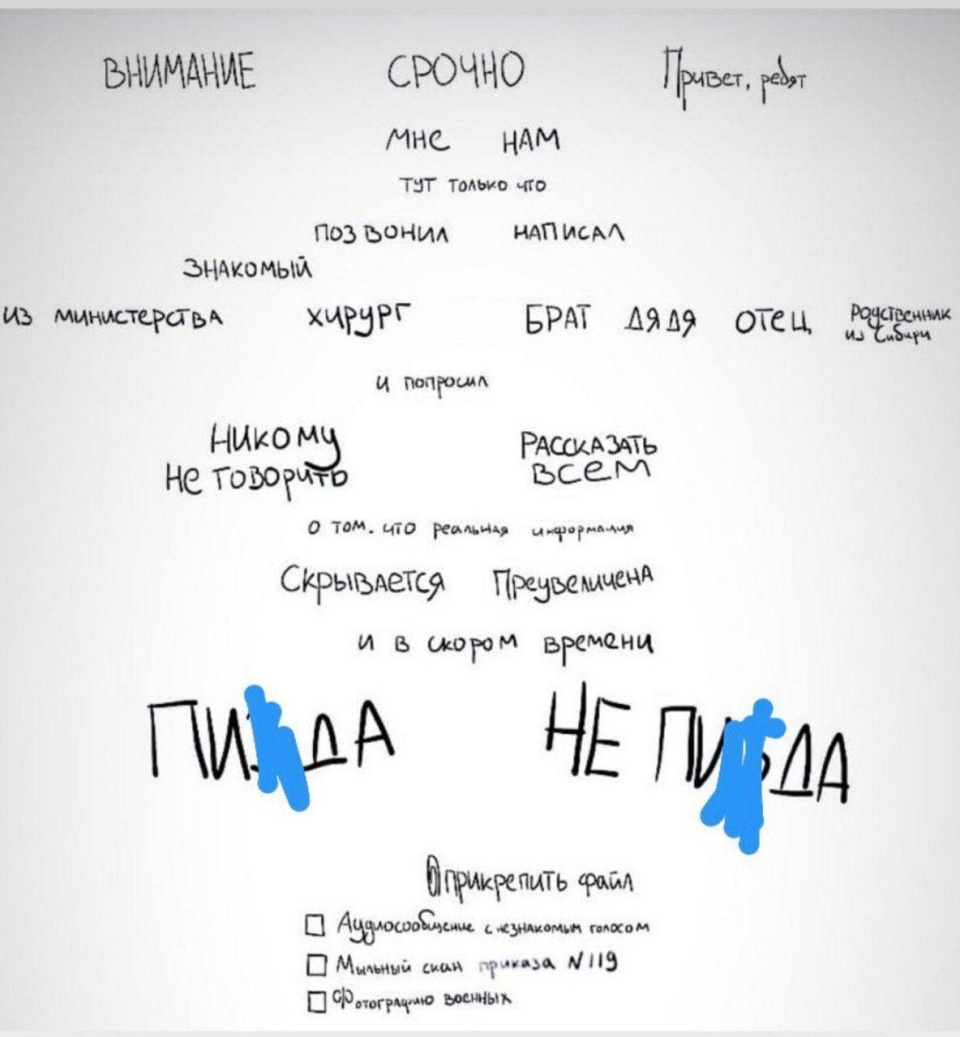 ВНИМАНИЕ СРОЧНО Привет, ребят
мне нам
тут только что
позвонил написал
знакомый
из министерства хирург БРАТ ДЯДЯ отец родственник
из Сибири
и попросил
никому рассказать
не говорить всем
о том. что реальная информация
Скрывается Преувеличена
и в скором времени
ПИ ДА НЕ ПИ ДА
прикрепить файл
Аудиосообщение с незнакомым голосом
Мыльный скан приказа №119
Фотографию военных